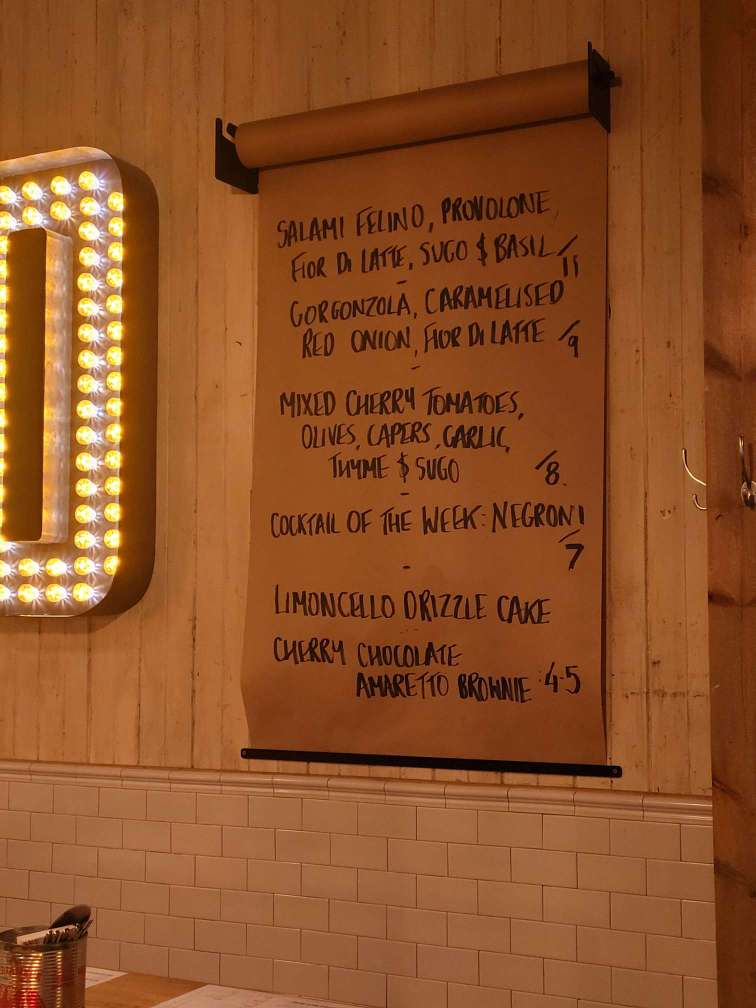 SALAMI FELINO, PROVOLONE,
FIOR DI LATTE, SUGO $ BASIL /11
-
GORGONZOLA, CARAMELISED
RED ONION, FIOR DI LATTE /9
-
MIXED CHERRY TOMATOES,
OLIVES, CAPERS, GARLIC,
THYME $ SUGO /8.
-
COCKTAIL OF THE WEEK: NEGRONI
/7
-
LIMONCELLO DRIZZLE CAKE
CHERRY CHOCOLATE
AMARETTO BROWNIE :4.5